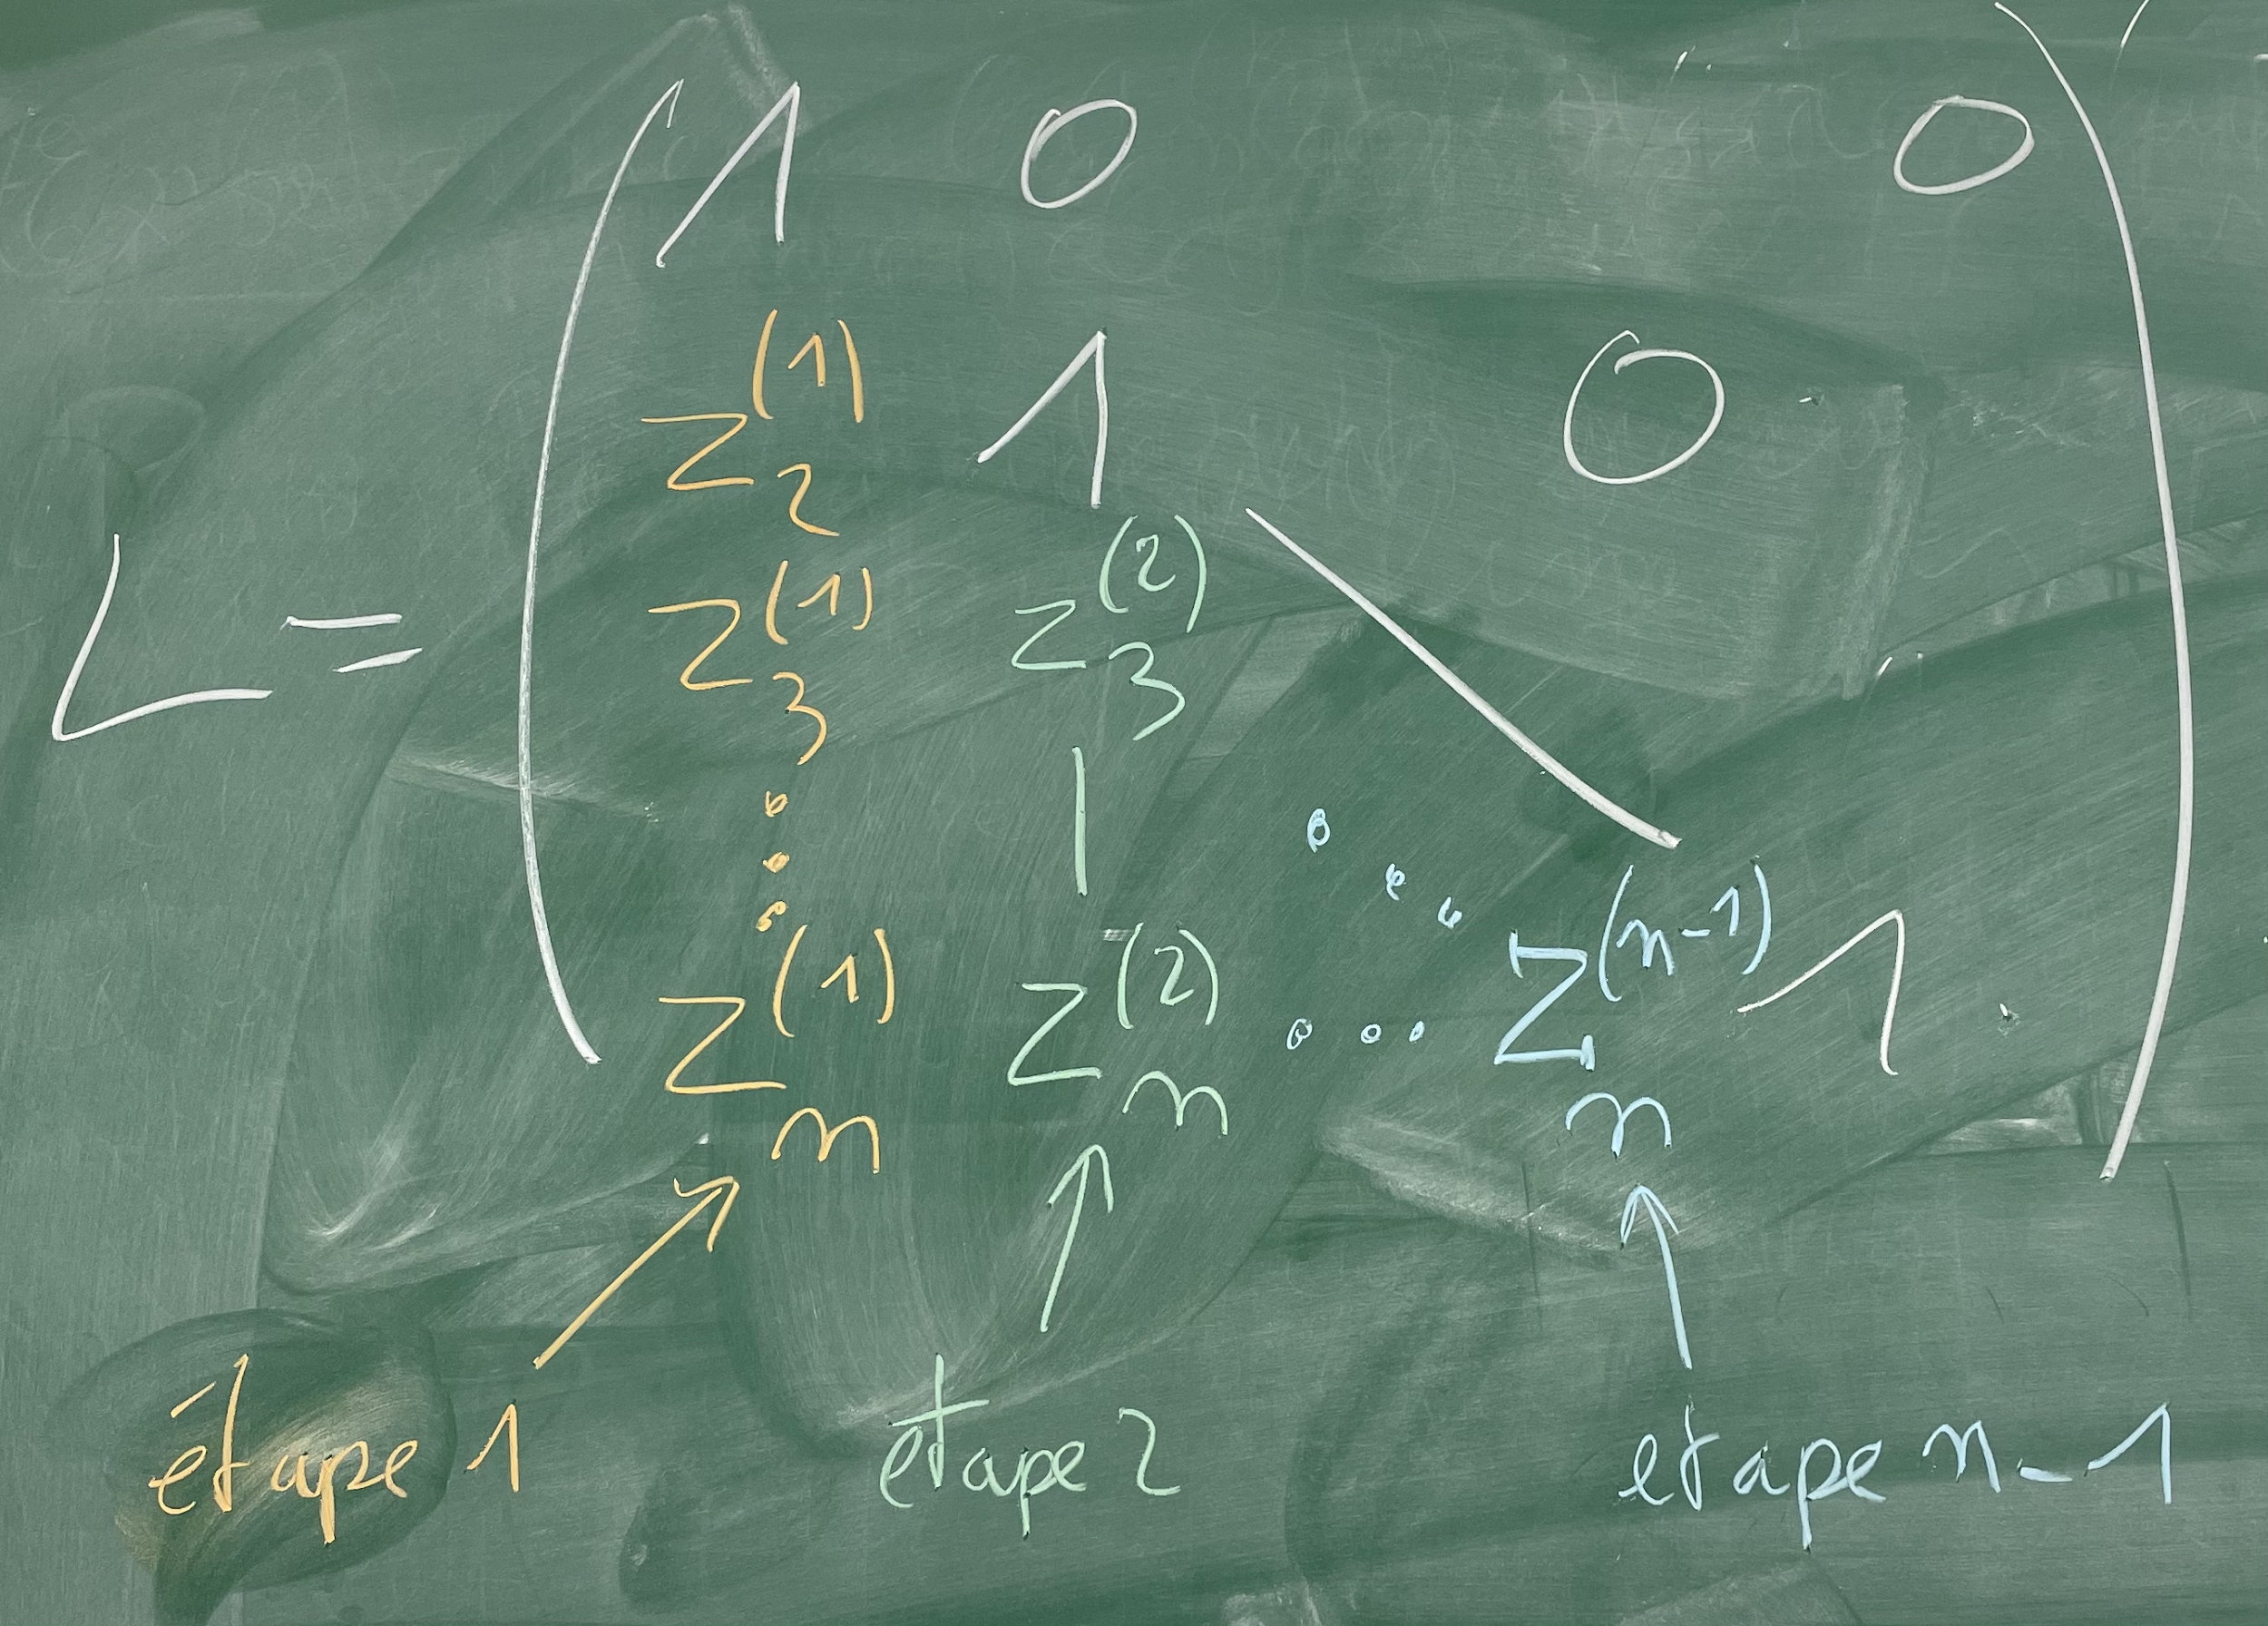 1 0 0
z₂⁽¹⁾ 1 0
L = z₃⁽¹⁾ z₃⁽²⁾
⋮ | ⋱
zₙ⁽¹⁾ zₙ⁽²⁾ ... zₙ⁽ⁿ⁻¹⁾ 1
étape 1 étape 2 étape n-1